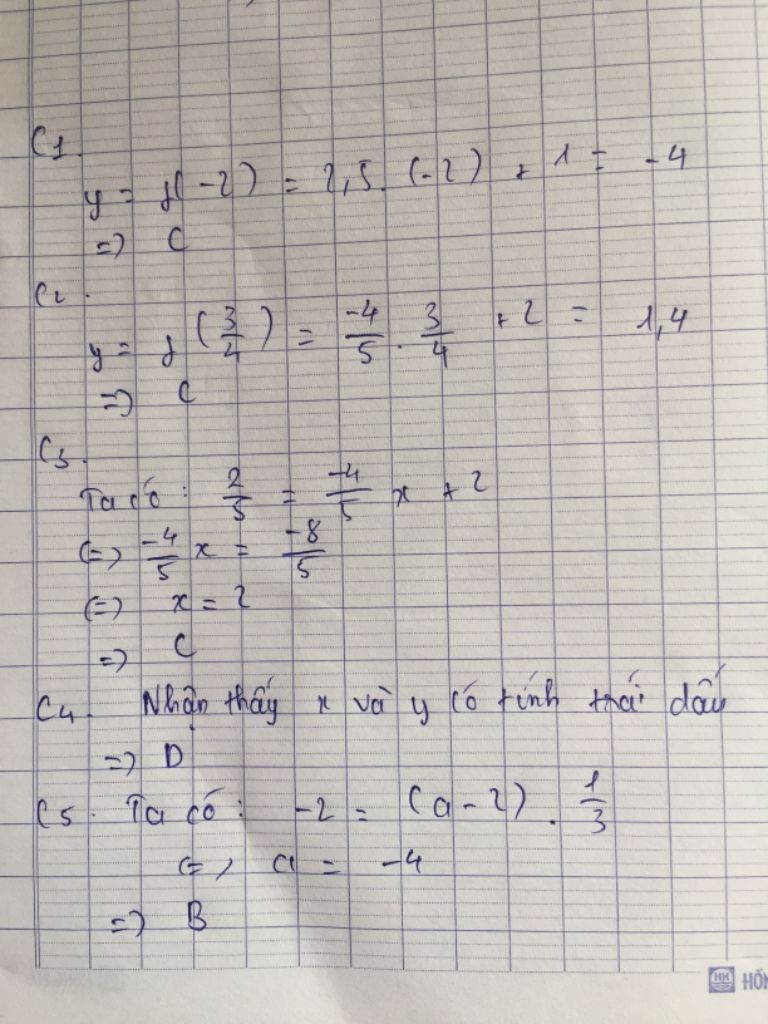 C1.
y = f(-2) = 2,5.(-2) + 1 = -4
=> C
C2.
y = f(3/4) = -4/5 . 3/4 + 2 = 1,4
=> C
C3.
Ta có: 2/5 = -4/5 x + 2
(=) -4/5 x = -8/5
(=) x = 2
=> C
C4. Nhận thấy x và y có tính trái dấu
=> D
C5. Ta có: -2 = (a-2). 1/3
(=) a = -4
=> B
HH